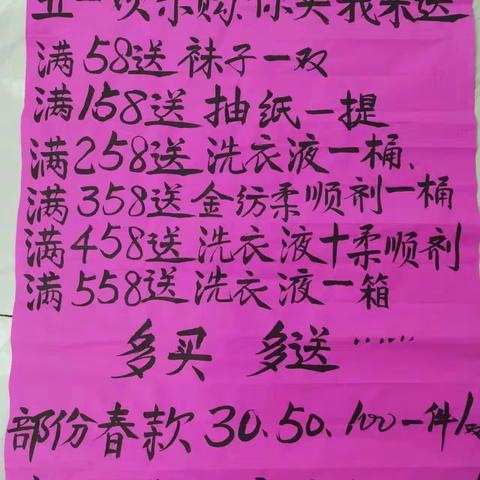 五一欢乐购，你买我来送
满58送袜子一双
满158送抽纸一提
满258送洗衣液一桶、
满358送金纺柔顺剂一桶
满458送洗衣液+柔顺剂
满558送洗衣液一箱
多买 多送……
部份春款30、50、100一件1双